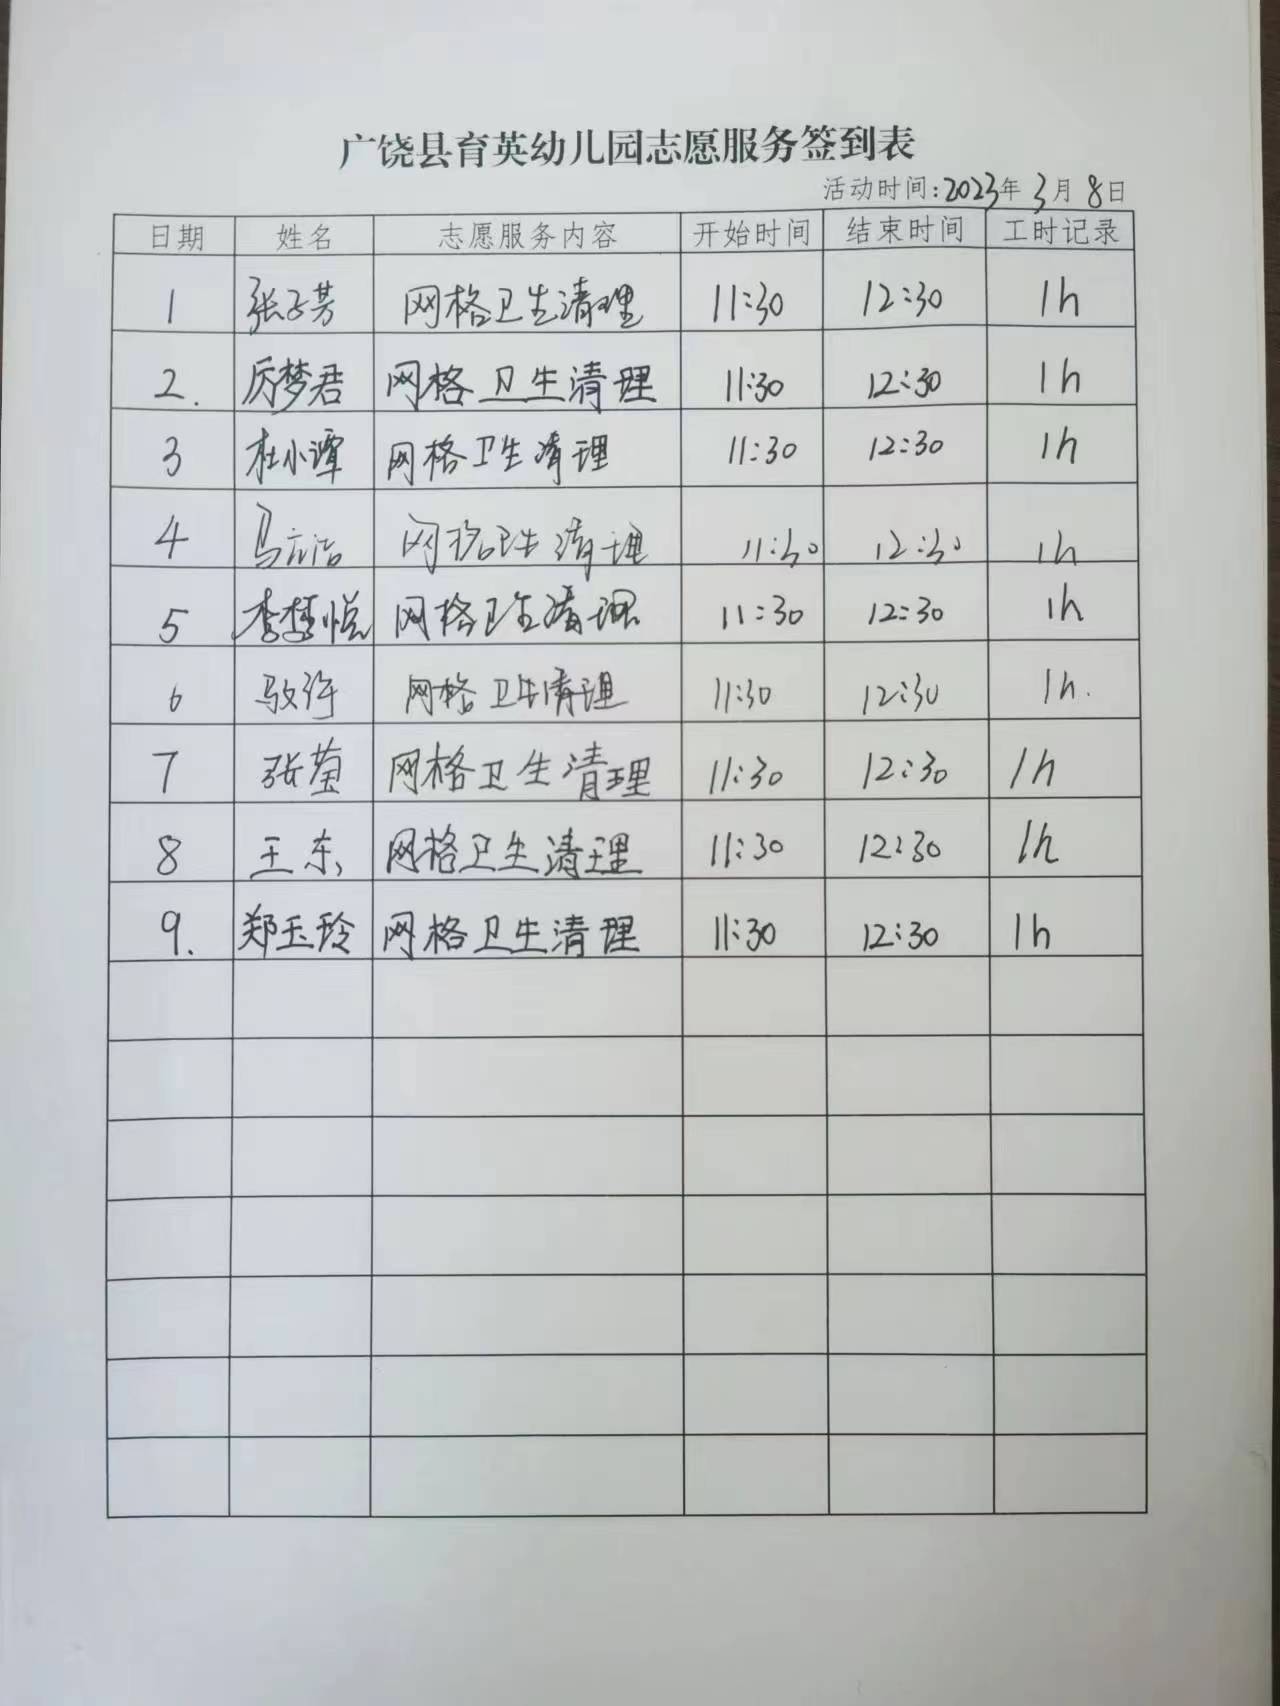 广饶县育英幼儿园志愿服务签到表
活动时间:2023年3月8日
日期 姓名 志愿服务内容 开始时间 结束时间 工时记录
1 张子芳 网格卫生清理 11:30 12:30 1h
2. 厉梦君 网格卫生清理 11:30 12:30 1h
3 杜小谭 网格卫生清理 11:30 12:30 1h
4 网格卫生清理 11:30 12:30 1h
5 李梦悦 网格卫生清理 11:30 12:30 1h
6 网格卫生清理 11:30 12:30 1h.
7 张莹 网格卫生清理 11:30 12:30 1h
8 王东 网格卫生清理 11:30 12:30 1h
9. 郑玉玲 网格卫生清理 11:30 12:30 1h